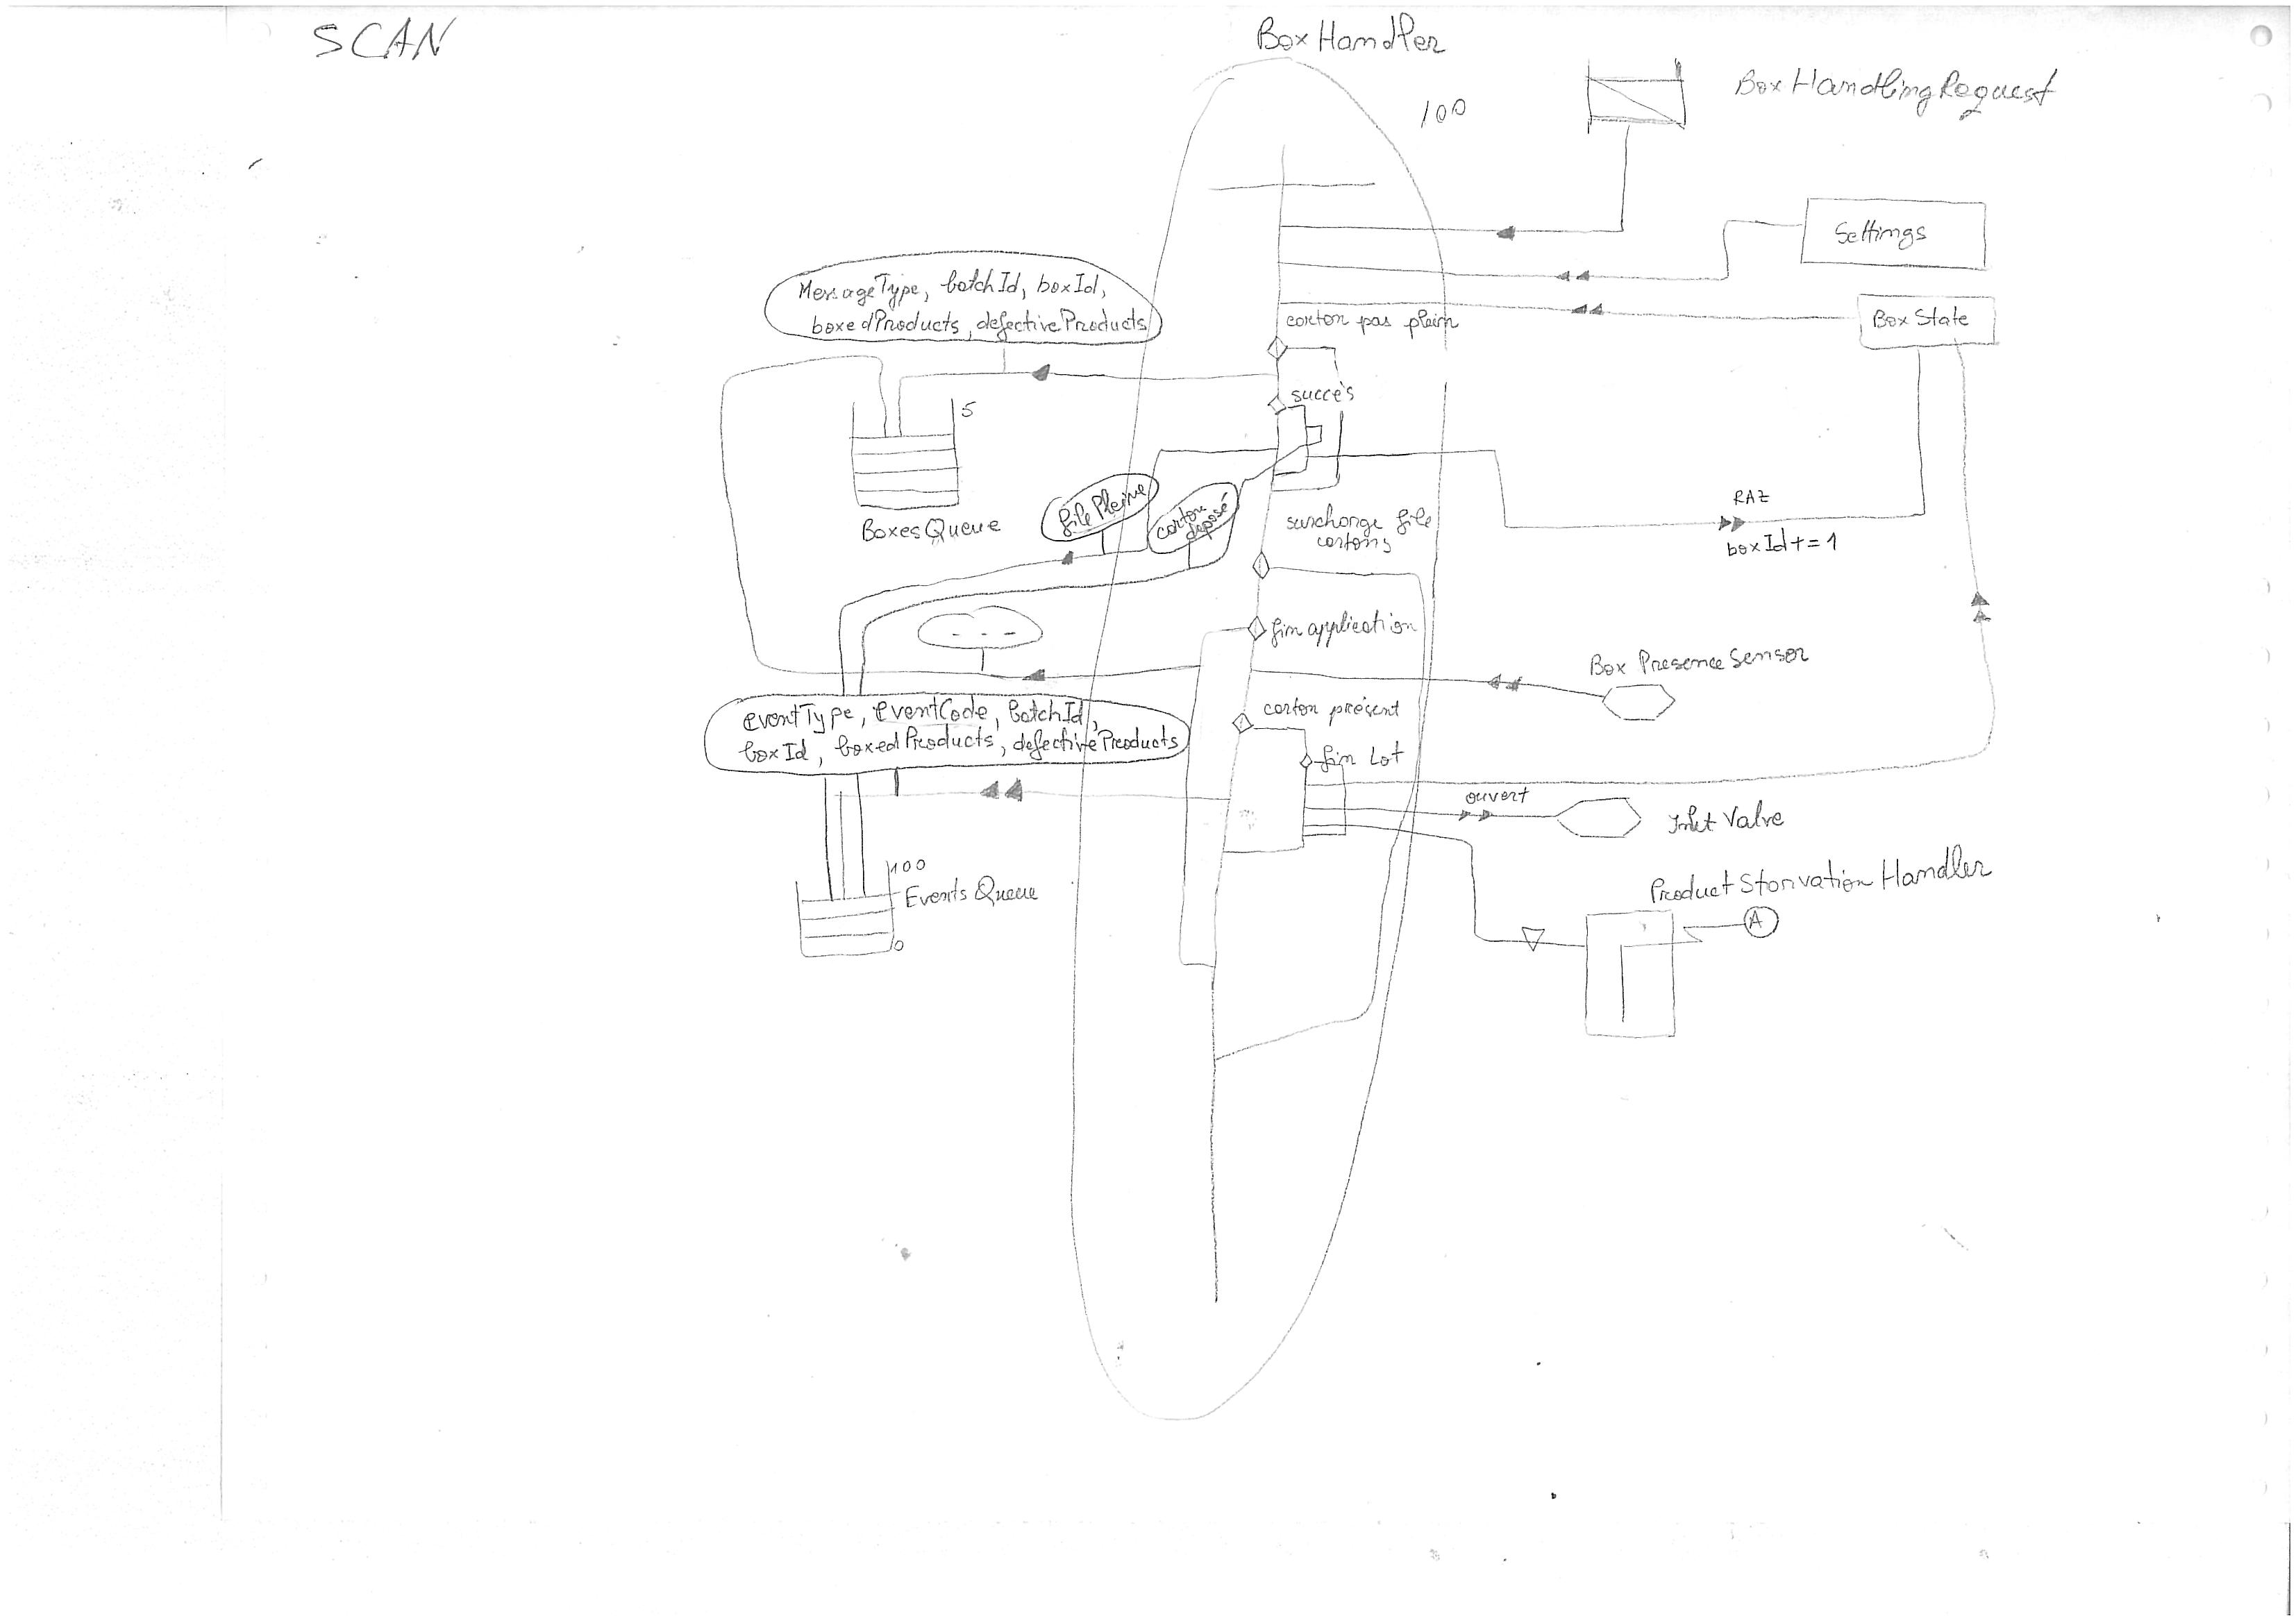 SCAN
BoxHandler
100
BoxHandlingRequest
Settings
MessageType, batchId, boxId,
boxedProducts, defectiveProducts
Box State
carton pas plein
succès
5
BoxesQueue
filePleine
carton
déposé
surcharge file
cartons
RAZ
boxId += 1
fin application
- - -
Box Presence Sensor
eventType, eventCode, batchId,
boxId, boxedProducts, defectiveProducts
carton présent
fin Lot
ouvert
Inlet Valve
100
Events Queue
0
Product Starvation Handler
A